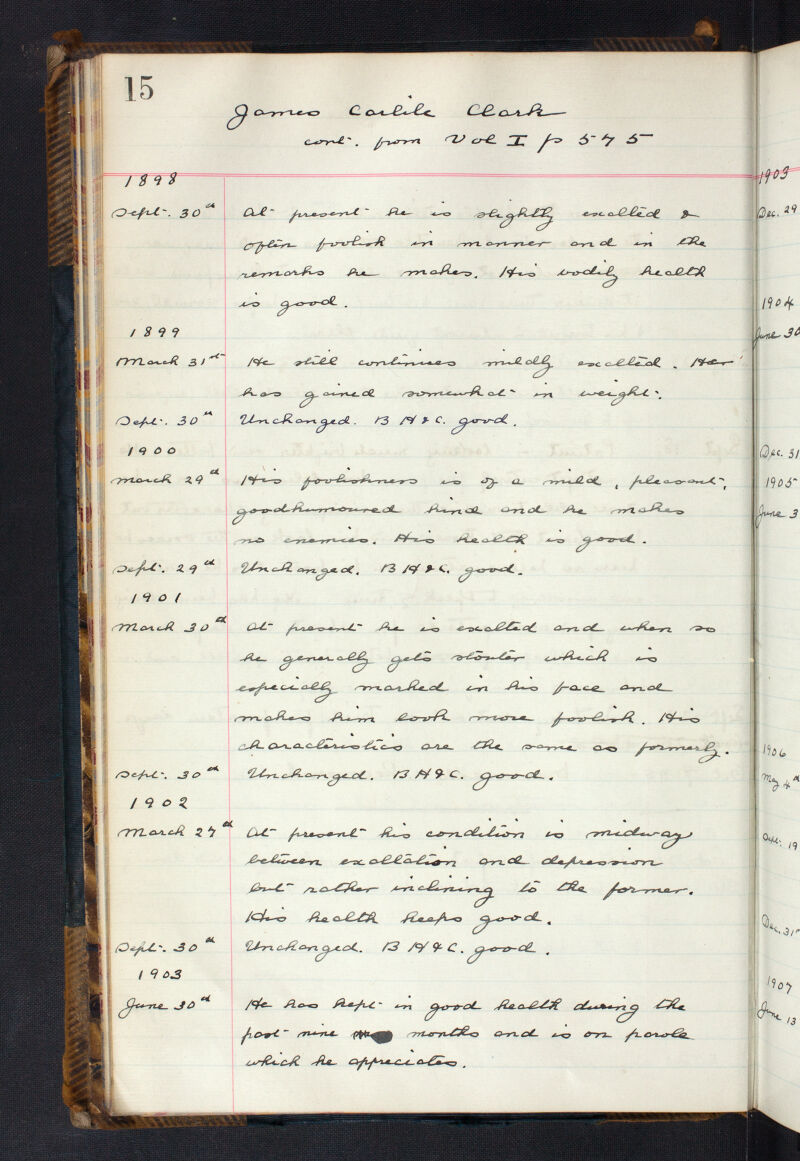 15
James Carlile Clark
cont. from Vol I p 575
1898
Sept. 30th At present he is slightly exalted &
often foolish in manner and in the
remarks he makes. His bodily health
is good.
1899
March 31st He still continues mildly exalted. He
has gained somewhat in weight.
Sept. 30th Unchanged. B H & C. good.
1900
March 29th His foolishness is of a mild, pleasant,
goodhumoured kind and he makes
no enemies. His health is good.
Sept. 29th Unchanged. B H & C. good.
1901
March 30th At present he is exalted and when so
he generally gets stouter which is
especially marked in his face and
makes him look more foolish. His
characteristics are the same as formerly.
Sept. 30th Unchanged. B H & C. good.
1902
March 27th At present his condition is midway
between exaltation and depression
but rather inclining to the former.
His health keeps good.
Sept. 30th Unchanged. B H & C. good.
1903
June 30th He has kept in good health during the
past nine months and is on parole
which he appreciates.
1903
Dec. 29
1904
June 30
Dec. 31
1905
June 3
1906
May 4th
Sept. 19
Dec. 31st
1907
June 13